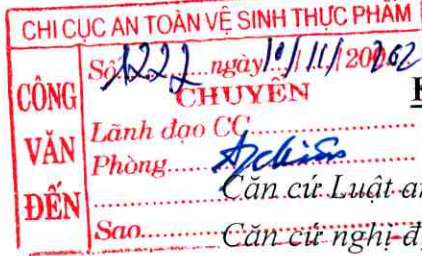 CHI CỤC AN TOÀN VỆ SINH THỰC PHẨM
CÔNG VĂN ĐẾN
Số 1222 ngày 10/11/20
CHUYỂN
Lãnh đạo CC
Phòng
Sao
Căn cứ Luật an
Căn cứ nghị đ